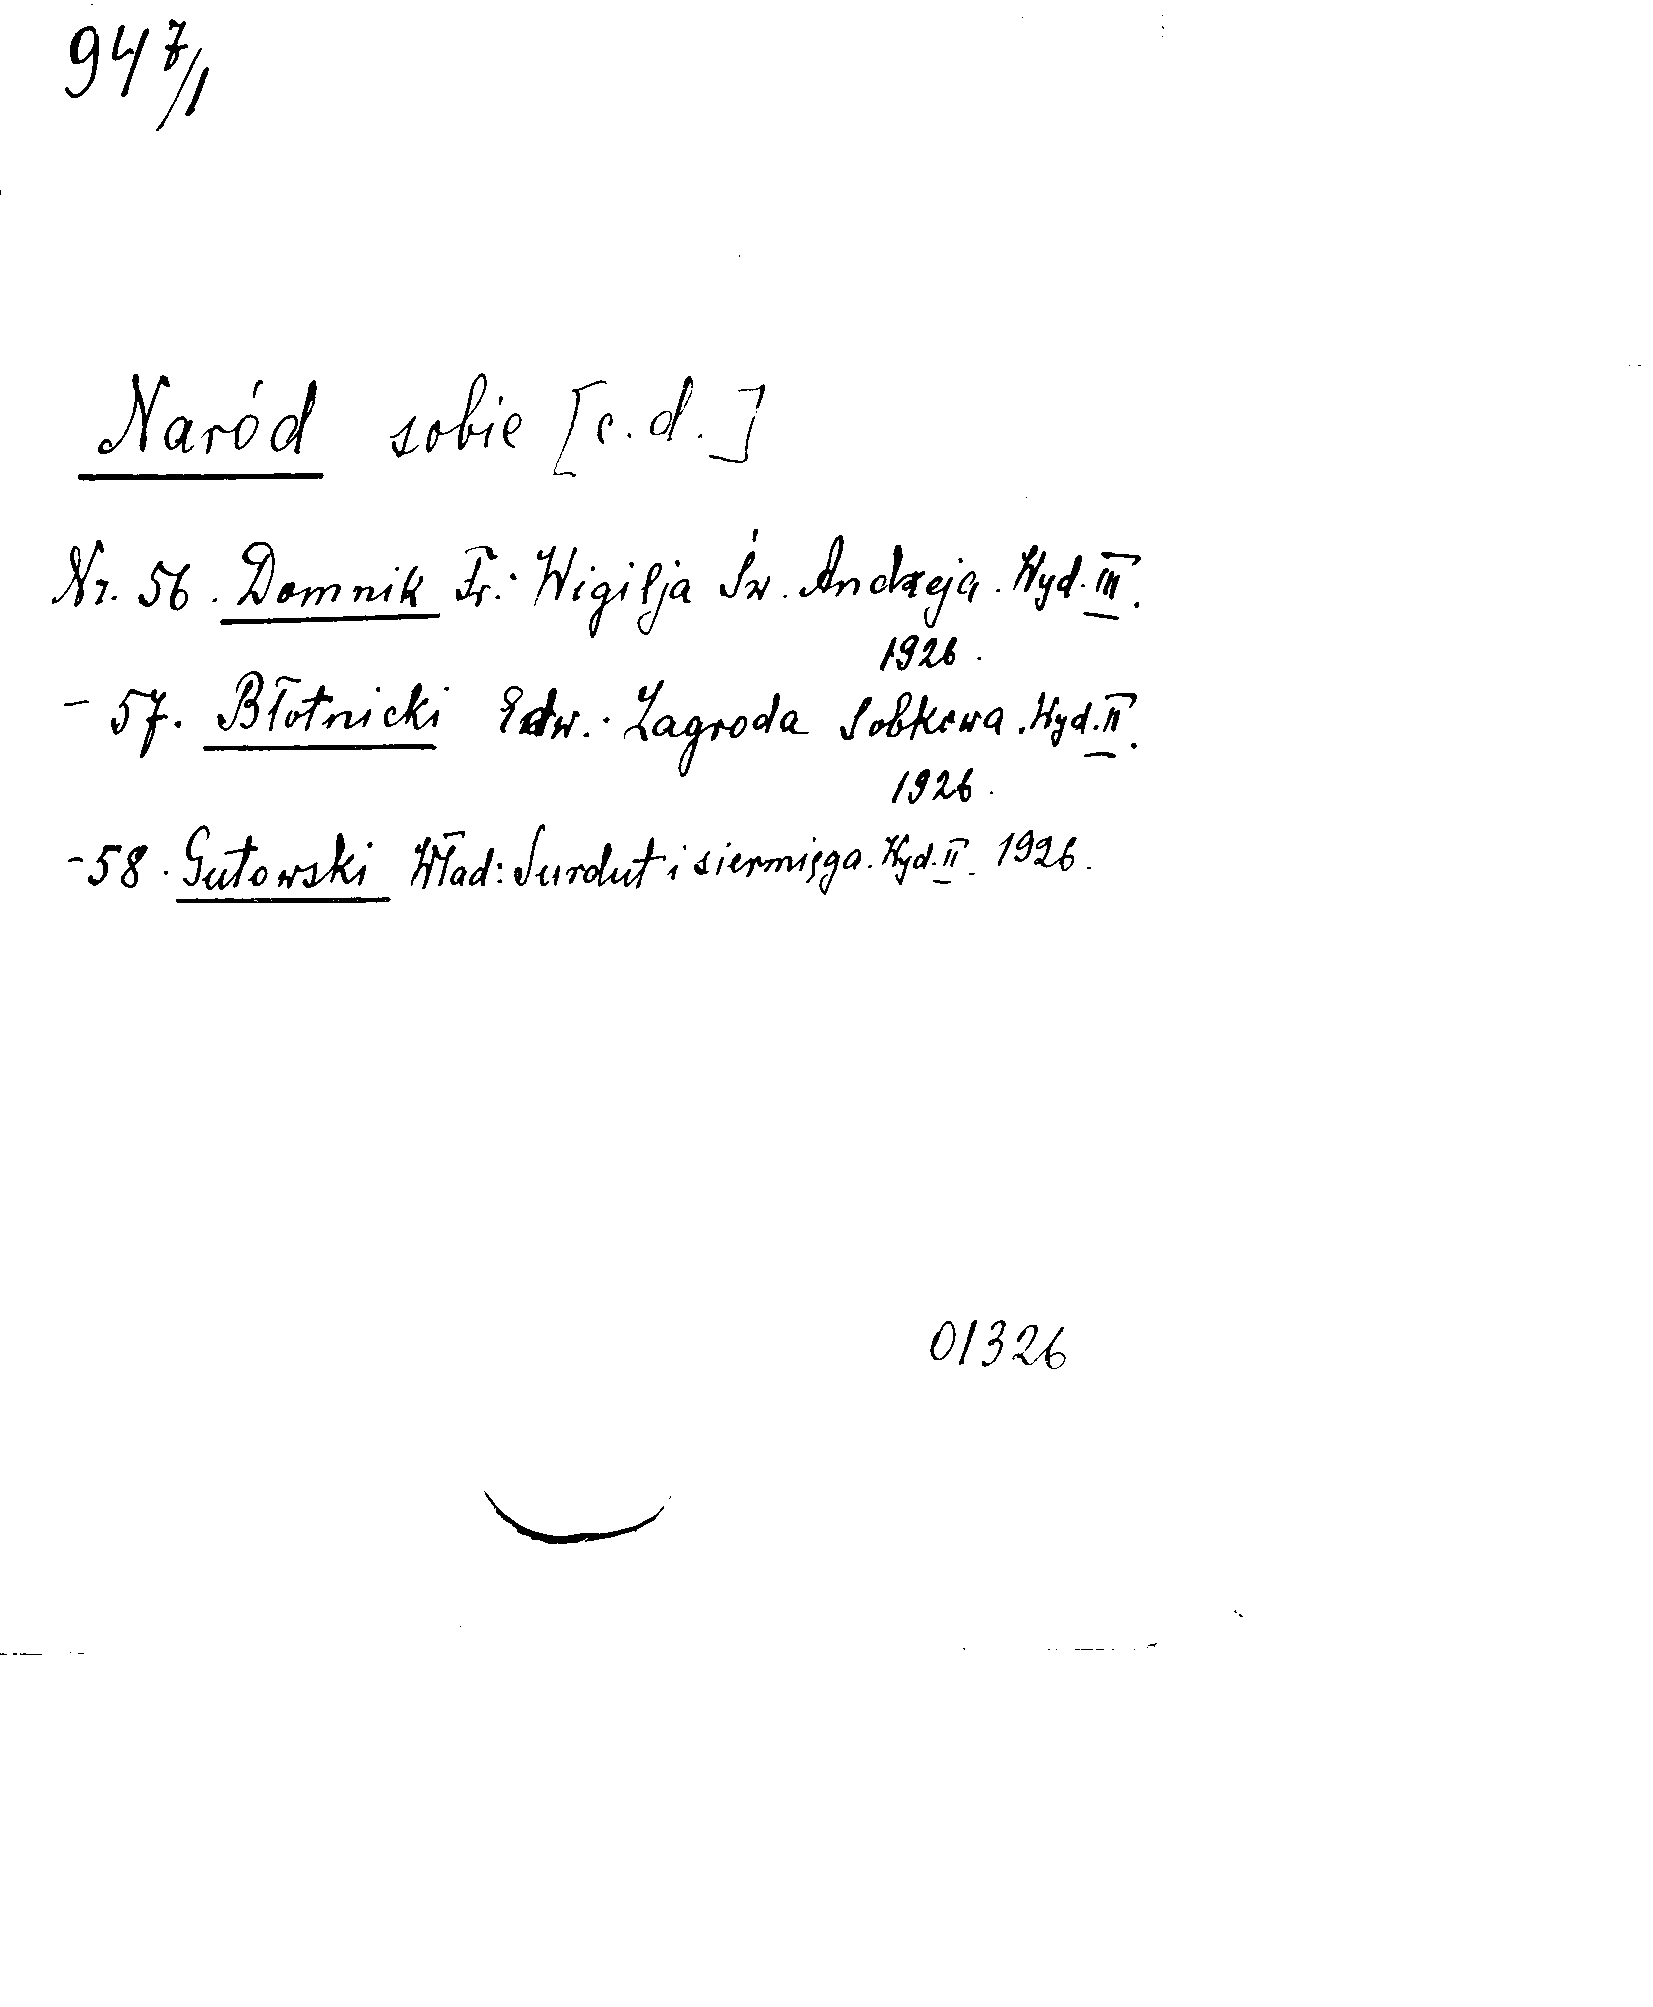 947/1
Naród sobie [c.d.]
Nr. 56. Domnik Fr.: Wigilja Św. Andrzeja. Wyd. III.
1926.
- 57. Błotnicki Edw.: Zagroda Sobkowa. Wyd. II.
1926.
- 58. Gutowski Wład: Surdut i siermięga. Wyd. II. 1926.
01326